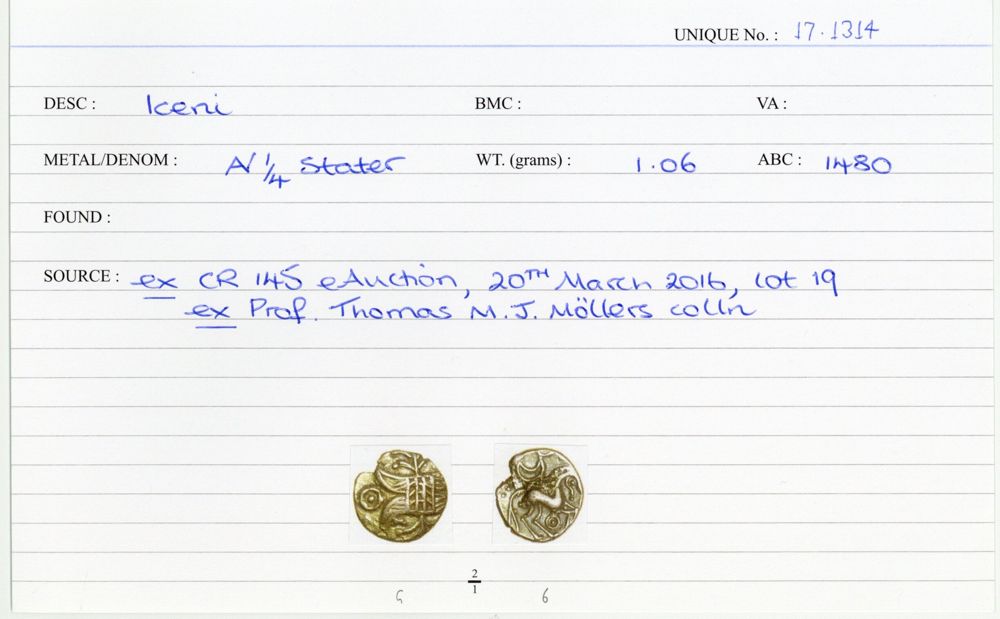 UNIQUE No. : 17.1314
DESC : Iceni BMC : VA :
METAL/DENOM : A/ 1/4 Stater WT. (grams) : 1.06 ABC : 1480
FOUND :
SOURCE : ex CR 145 eAuction, 20TH March 2016, lot 19
ex Prof. Thomas M.J. Möllers colln
2
1
6